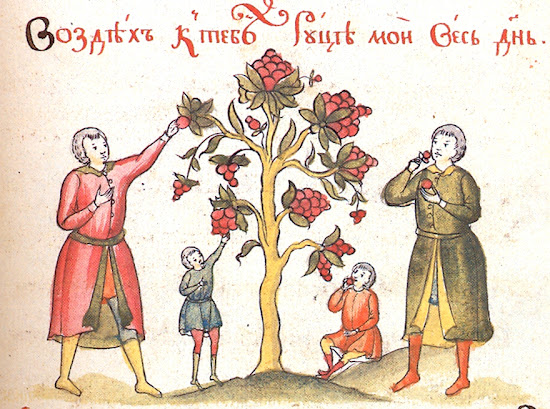 Воздѣхъ к̾ тебѣ руцѣ мои весь дн҃ь.